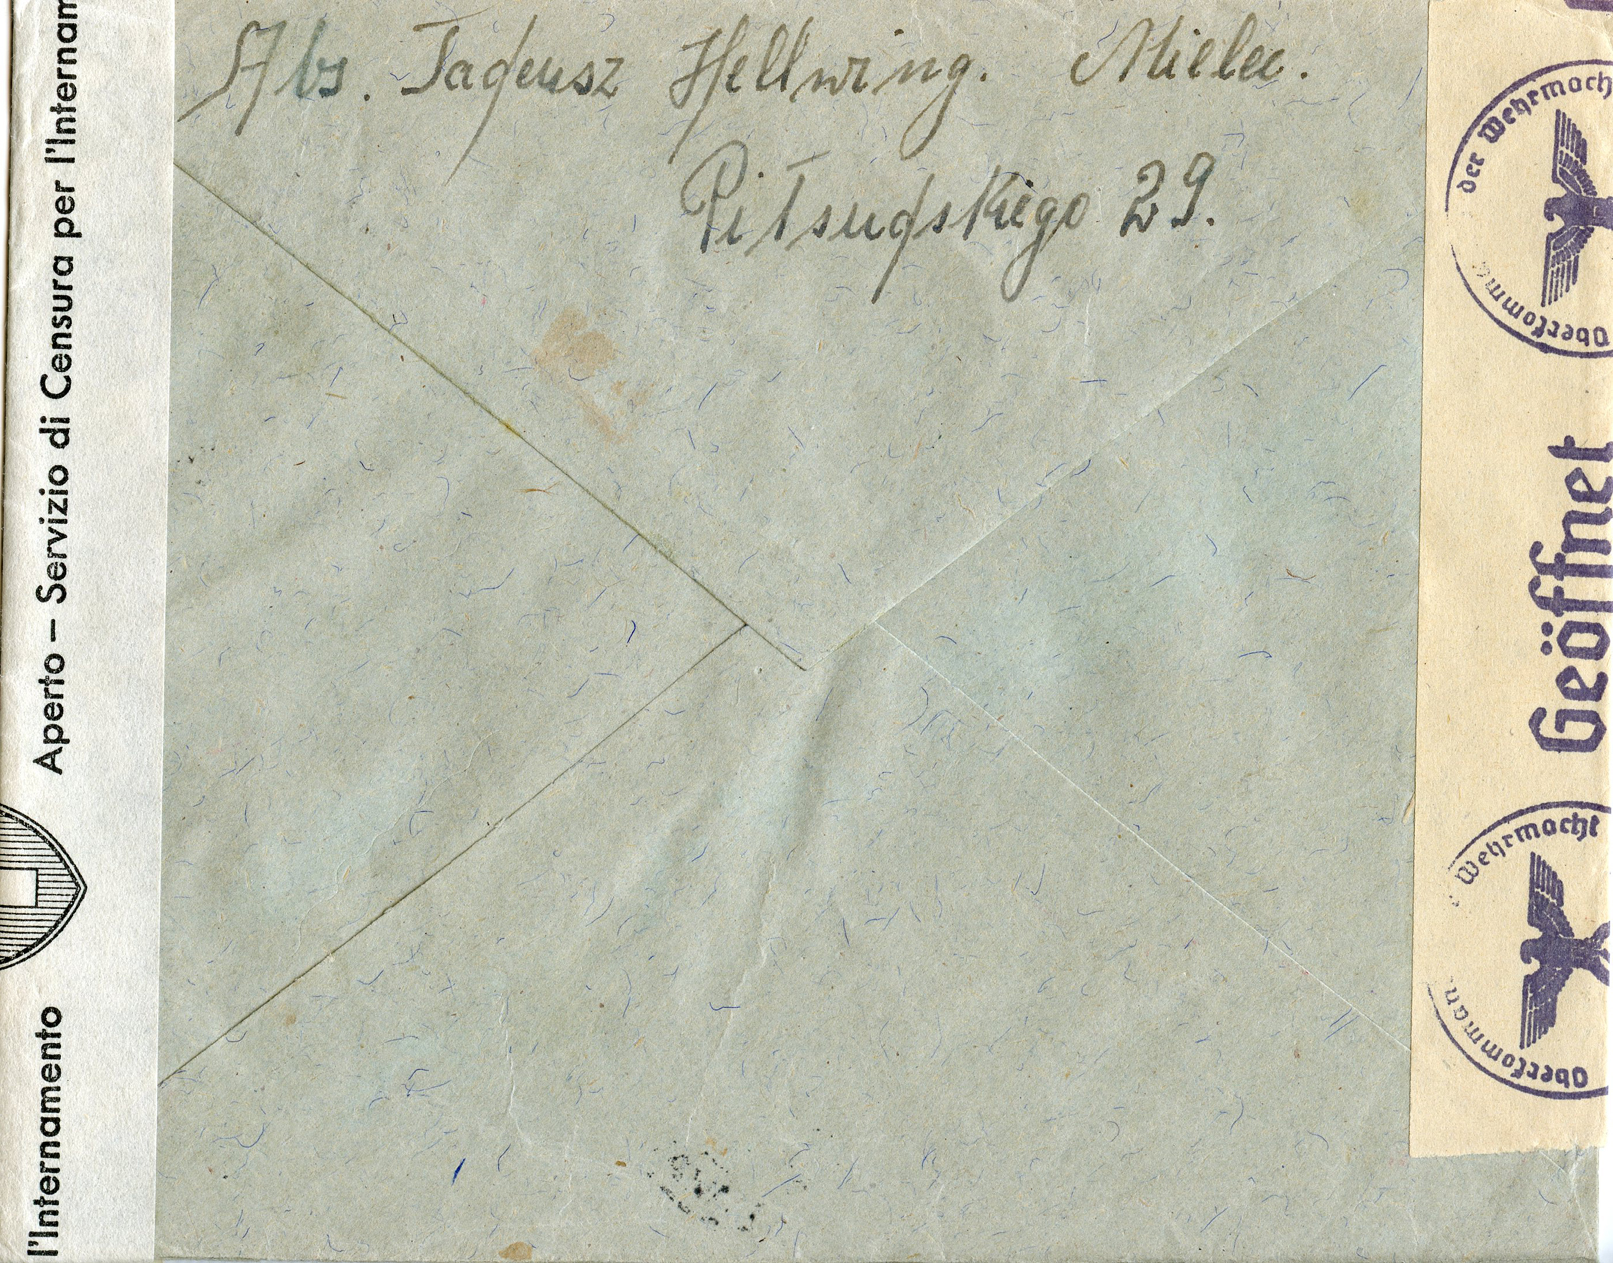 Abs. Tadeusz Hellwing. Mielec.
Piłsudskiego 29.
Aperto – Servizio di Censura per l'Internam
l'Internamento
der Wehrmach
Oberkomm
Geöffnet
Wehrmacht
Oberkomman